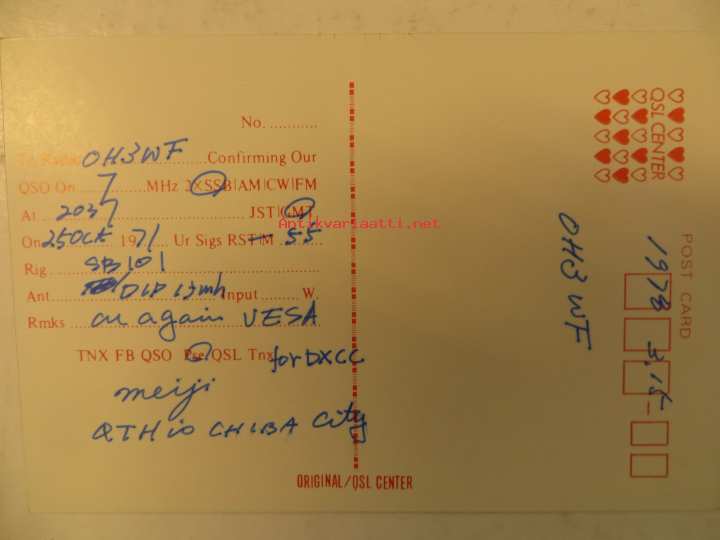 No. ...........
To Radio OH3WF Confirming Our
QSO On 7 MHz SSB|AM|CW|FM
At 2037 JST|GMT
On 25 Oct 1971 Ur Sigs RST|M 55
Rig SB101
Ant DLP 17mh Input W.
Rmks on again VESA
TNX FB QSO Pse/QSL Tnx for DXCC
meiji
QTH is CHIBA City
ORIGINAL/QSL CENTER
QSL CENTER
POST CARD
1978 3.15
OH3WF
Antikvariaatti.net